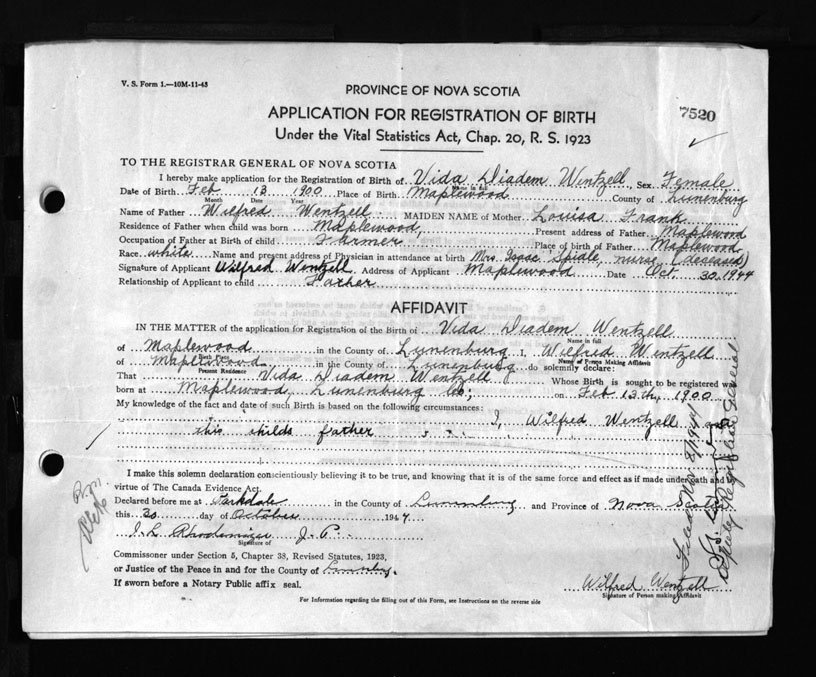 V. S. Form 1.—10M-11-43
PROVINCE OF NOVA SCOTIA
7520
APPLICATION FOR REGISTRATION OF BIRTH
Under the Vital Statistics Act, Chap. 20, R. S. 1923
TO THE REGISTRAR GENERAL OF NOVA SCOTIA
I hereby make application for the Registration of Birth of Vida Diadem Wentzell Sex Female
Name in full
Date of Birth Feb 13 1900 Place of Birth Maplewood County of Lunenburg
Month Date Year
Name of Father Wilfred Wentzell MAIDEN NAME of Mother Louisa Frank
Residence of Father when child was born Maplewood, Present address of Father Maplewood
Occupation of Father at Birth of child Farmer Place of birth of Father Maplewood
Race white Name and present address of Physician in attendance at birth Mrs. Isaac Spidle, nurse, (deceased)
Signature of Applicant Wilfred Wentzell Address of Applicant Maplewood Date Oct. 30, 1944
Relationship of Applicant to child Father
AFFIDAVIT
IN THE MATTER of the application for Registration of the Birth of Vida Diadem Wentzell
Name in full
of Maplewood in the County of Lunenburg I, Wilfred Wentzell
Birth Place Name of Person Making Affidavit
of Maplewood in the County of Lunenburg do solemnly declare:
Present Residence
That Vida Diadem Wentzell Whose Birth is sought to be registered was
born at Maplewood, Lunenburg Co; on Feb 13th, 1900
My knowledge of the fact and date of such Birth is based on the following circumstances: I, Wilfred Wentzell am
this childs father
I make this solemn declaration conscientiously believing it to be true, and knowing that it is of the same force and effect as if made under oath and by
virtue of The Canada Evidence Act.
Declared before me at Parkdale in the County of Lunenburg and Province of Nova Scotia
this 30 day of October 1944
J. L. Rhodenizer J. P.
Signature of
Commissioner under Section 5, Chapter 38, Revised Statutes, 1923,
or Justice of the Peace in and for the County of Lunenburg.
If sworn before a Notary Public affix seal.
Wilfred Wentzell
Signature of Person making Affidavit
For Information regarding the filling out of this Form, see Instructions on the reverse side
Filed Nov 8/1944
Deputy Registrar General